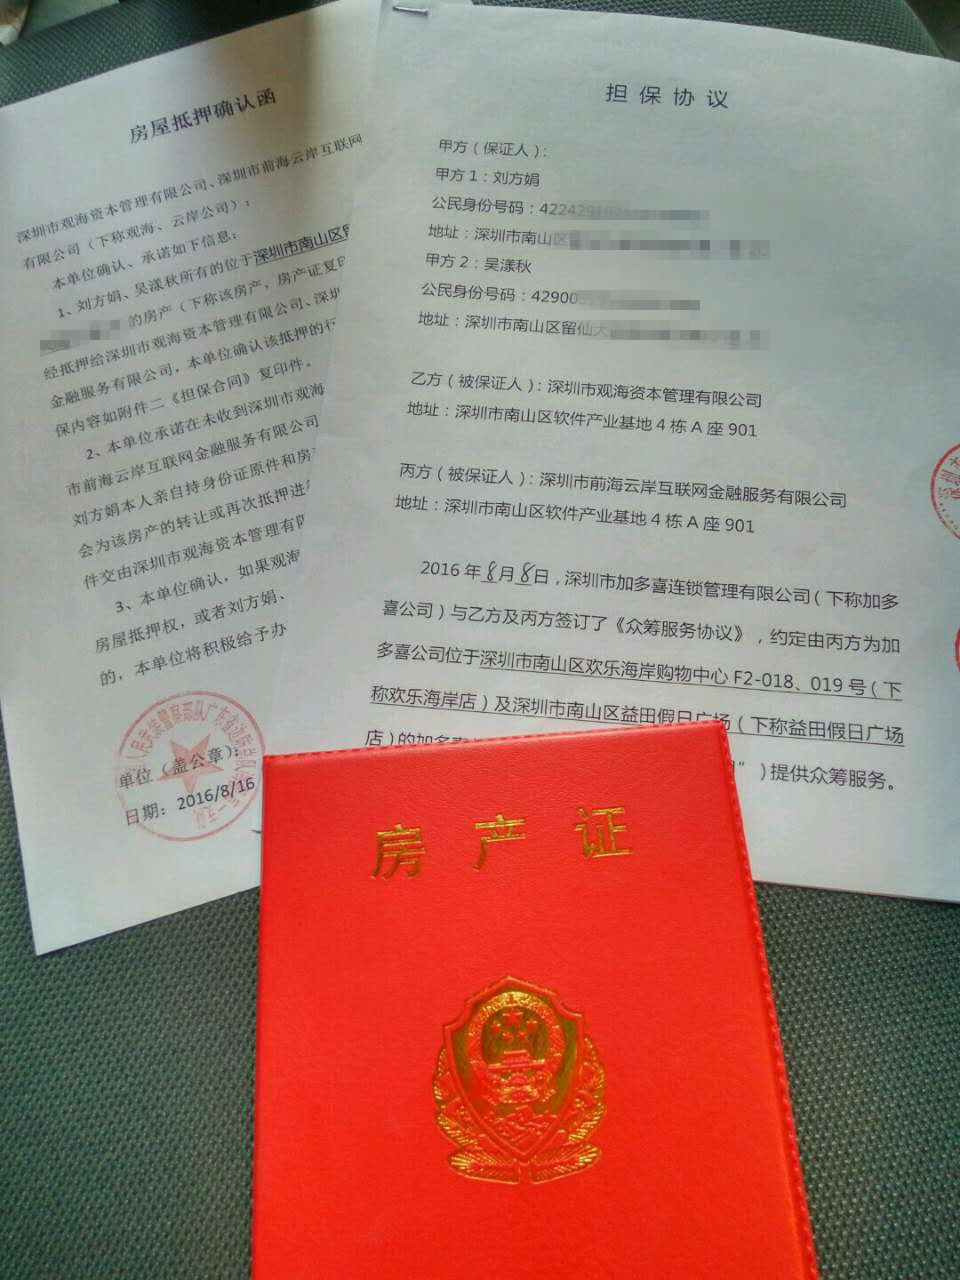 房屋抵押确认函
深圳市观海资本管理有限公司、深圳市前海云岸互联网
有限公司（下称观海、云岸公司）：
本单位确认、承诺如下信息：
1、刘方娟、吴漾秋所有的位于深圳市南山区留
的房产（下称该房产，房产证复印
经抵押给深圳市观海资本管理有限公司、深圳
金融服务有限公司，本单位确认该抵押的行
保内容如附件二《担保合同》复印件。
2、本单位承诺在未收到深圳市观海
市前海云岸互联网金融服务有限公司
刘方娟本人亲自持身份证原件和房
会为该房产的转让或再次抵押进
件交由深圳市观海资本管理有限
3、本单位确认，如果观海
房屋抵押权，或者刘方娟、
的，本单位将积极给予办
单位（盖公章）：
日期：2016/8/16
担保协议
甲方（保证人）：
甲方1：刘方娟
公民身份号码：422429197
地址：深圳市南山区
甲方2：吴漾秋
公民身份号码：42900
地址：深圳市南山区留仙大
乙方（被保证人）：深圳市观海资本管理有限公司
地址：深圳市南山区软件产业基地4栋A座901
丙方（被保证人）：深圳市前海云岸互联网金融服务有限公司
地址：深圳市南山区软件产业基地4栋A座901
2016年8月8日，深圳市加多喜连锁管理有限公司（下称加多
喜公司）与乙方及丙方签订了《众筹服务协议》，约定由丙方为加
多喜公司位于深圳市南山区欢乐海岸购物中心F2-018、019号（下
称欢乐海岸店）及深圳市南山区益田假日广场（下称益田假日广场
店）的加多
”）提供众筹服务。
房产证